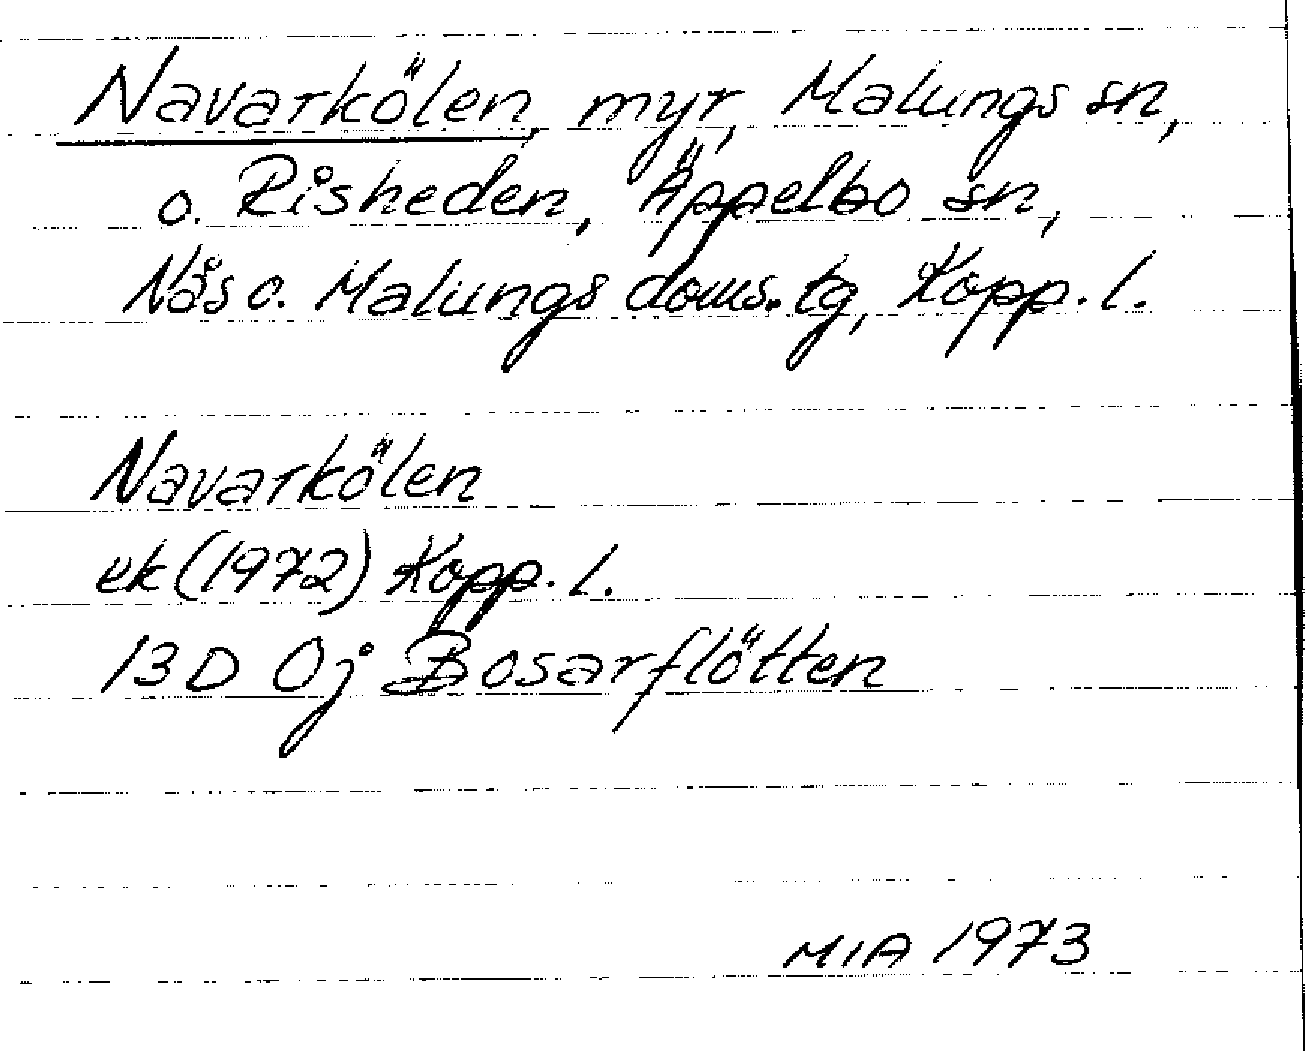 Navarkölen, myr, Malungs sn,
o. Risheden, Äppelbo sn,
Nås o. Malungs doms. tg, Kopp. l.
Navarkölen
ek (1972) Kopp. l.
13D 0j Bosarflötten
MIA 1973